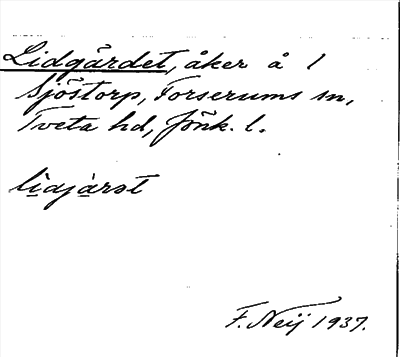 Lidgärdet, åker å 1
Sjöstorp, Forserums sn,
Tveta hd, Jönk. l.
lidjärst
F. Neij 1937.